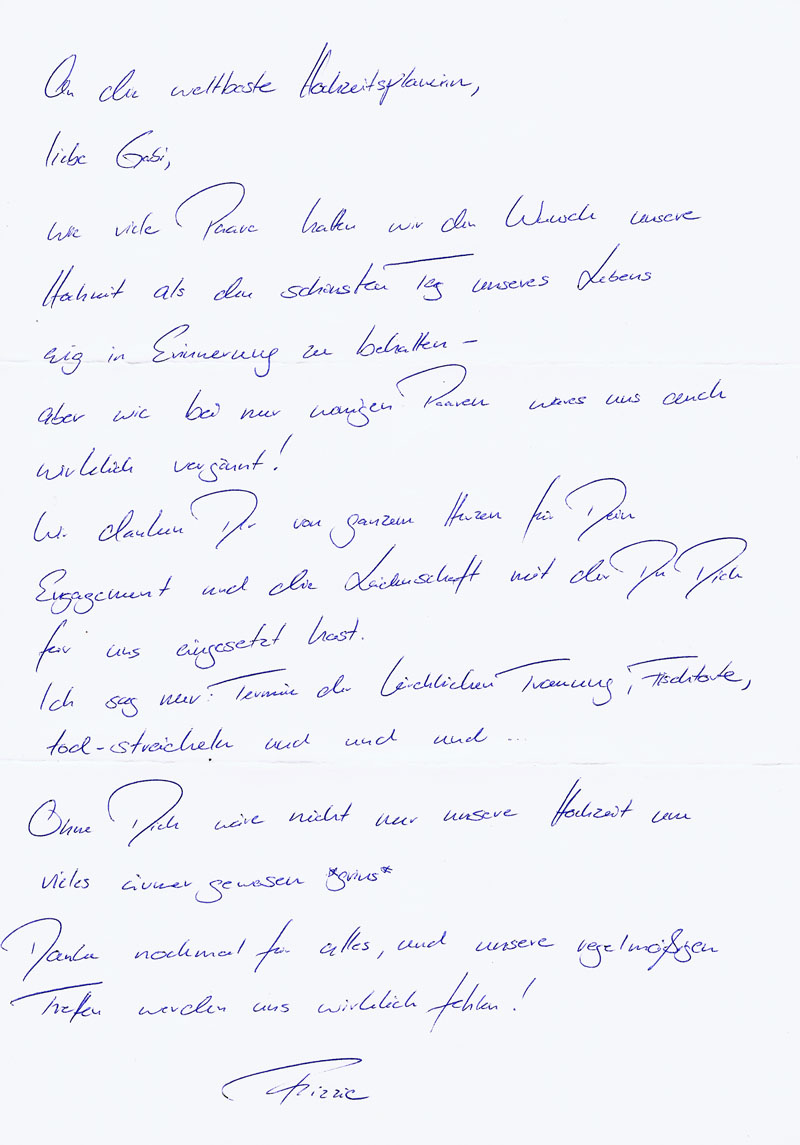 An die weltbeste Hochzeitsplanerin,
liebe Gabi,
wie viele Paare hatten wir den Wunsch unsere
Hochzeit als den schönsten Tag unseres Lebens
ewig in Erinnerung zu behalten –
aber wie bei nur wenigen Paaren war es uns auch
wirklich vergönnt!
Wir danken Dir von ganzem Herzen für Dein
Engagement und die Leidenschaft mit der Du Dich
für uns eingesetzt hast.
Ich sag nur: Termin der kirchlichen Trauung, Fischtorte,
tod-streicheln und und und ...
Ohne Dich wäre nicht nur unsere Hochzeit um
vieles ärmer gewesen *grins*
Danke nochmal für alles, und unsere regelmäßigen
Treffen werden uns wirklich fehlen!